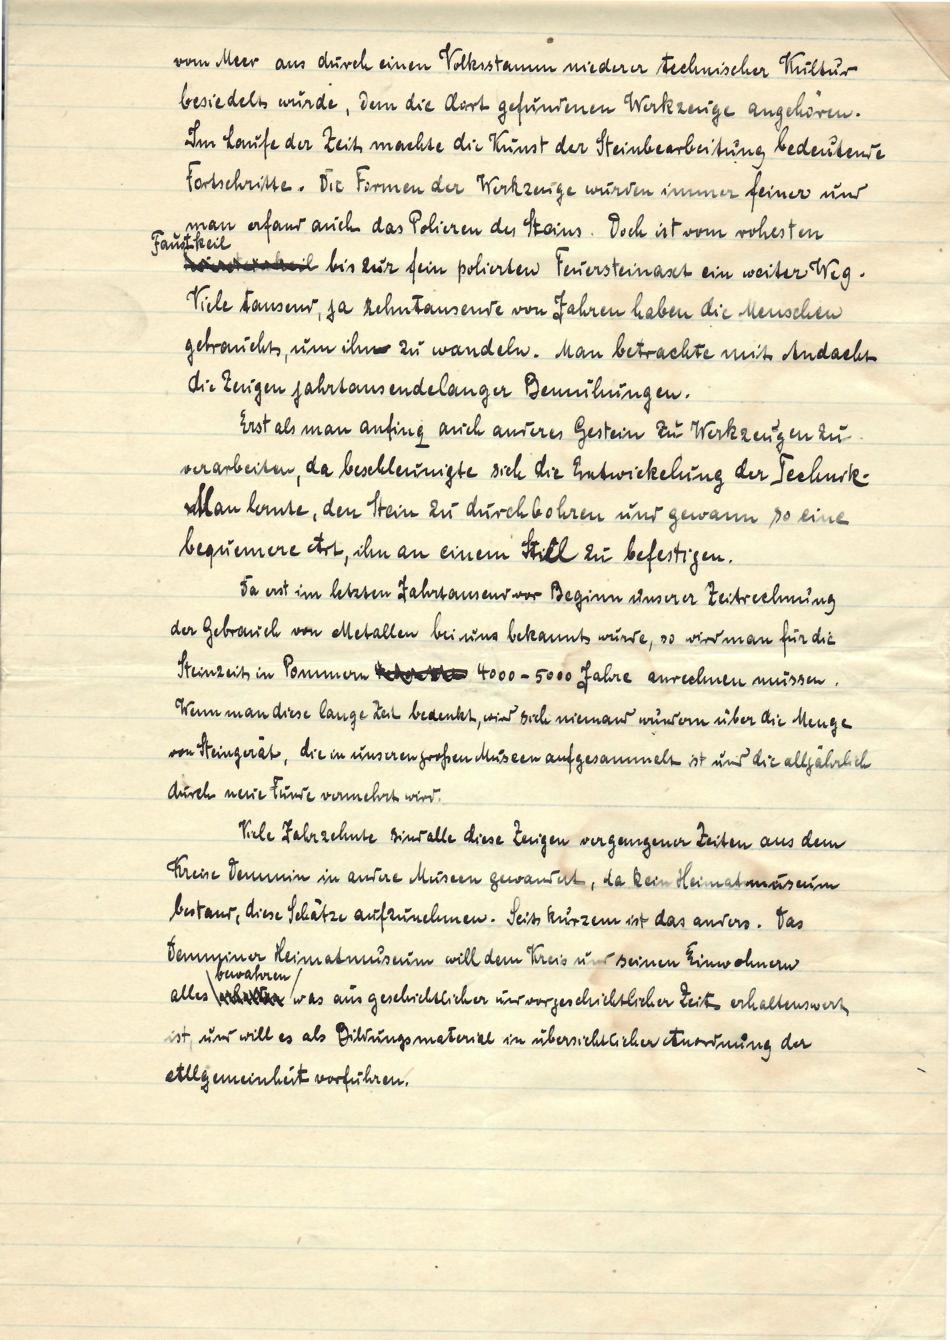 vom Meer aus durch einen Volksstamm niederer technischer Kultur
besiedelt wurde, dem die dort gefundenen Werkzeuge angehören.
Im Laufe der Zeit machte die Kunst der Steinbearbeitung bedeutende
Fortschritte. Die Formen der Werkzeuge wurden immer feiner und
man erfand auch das Polieren des Steins. Doch ist vom rohesten
Faustkeil
bis zur fein polierten Feuersteinaxt ein weiter Weg.
Viele tausend, ja zehntausende von Jahren haben die Menschen
gebraucht, um ihn zu wandeln. Man betrachte mit Andacht
die Zeugen jahrtausendelanger Bemühungen.
Erst als man anfing auch anderes Gestein zu Werkzeugen zu
verarbeiten, da beschleunigte sich die Entwickelung der Technik.
Man lernte, den Stein zu durchbohren und gewann so eine
bequemere Art, ihn an einem Stiel zu befestigen.
Da erst im letzten Jahrtausend vor Beginn unserer Zeitrechnung
der Gebrauch von Metallen bei uns bekannt wurde, so wird man für die
Steinzeit in Pommern 4000-5000 Jahre anrechnen müssen.
Wenn man diese lange Zeit bedenkt, wird sich niemand wundern über die Menge
von Steingerät, die in unseren großen Museen aufgesammelt ist und die alljährlich
durch neue Funde vermehrt wird.
Viele Jahrzehnte sind alle diese Zeugen vergangener Zeiten aus dem
Kreise Demmin in andre Museen gewandert, da kein Heimatmuseum
bestand, diese Schätze aufzunehmen. Seit kurzem ist das anders. Das
Demminer Heimatmuseum will dem Kreis und seinen Einwohnern
bewahren
alles was aus geschichtlicher und vorgeschichtlicher Zeit erhaltenswert
ist, und will es als Bildungsmaterial in übersichtlicher Anordnung der
Allgemeinheit vorführen.